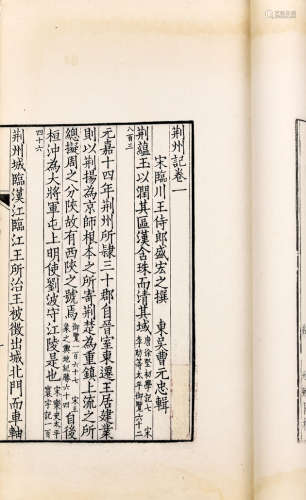 荊州記卷一
宋臨川王侍郎盛宏之撰 東吳曹元忠輯
荊蘊玉以潤其區漢含珠而清其域 唐徐堅初學記七 宋李昉等太平御覽六十二
八百三
元嘉十四年荊州所隸三十郡自晉室東遷王居建業
則以荊揚為京師根本之所寄荊楚為重鎮上流之所
總擬周之分陝故有西陝之號焉 御覽一百六十七 宋王象之輿地紀勝六十四 自後
桓沖為大將軍屯上明使劉波守江陵是也 宋樂史太平寰宇記一百
四十六
荊州城臨漢江臨江王所治王被徵出城北門而車軸